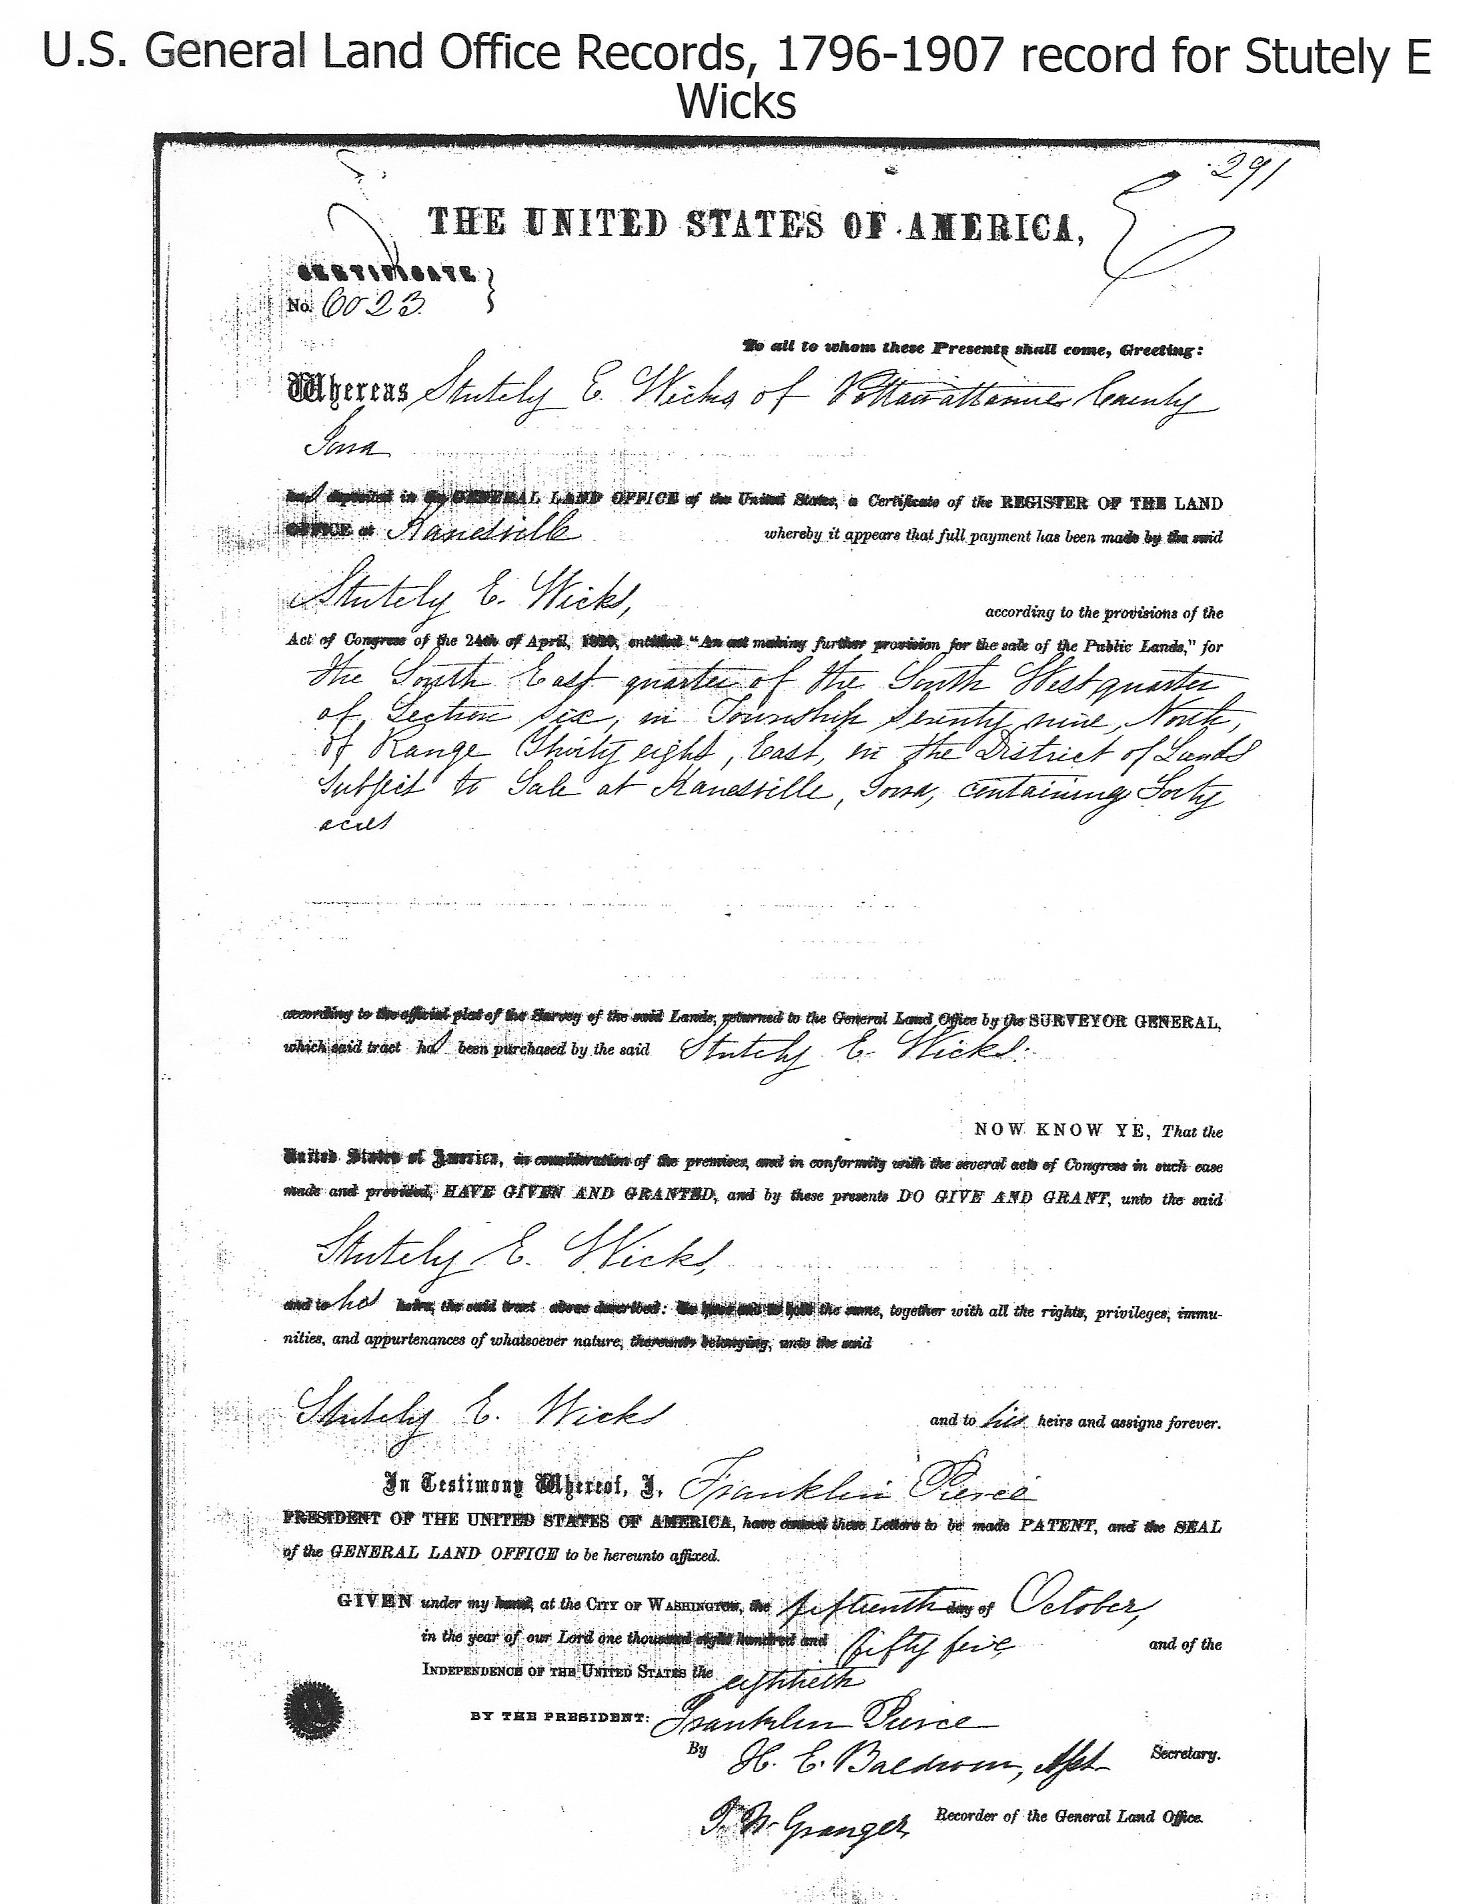 U.S. General Land Office Records, 1796-1907 record for Stutely E
Wicks
291
THE UNITED STATES OF AMERICA,
CERTIFICATE
No. 6023
To all to whom these Presents shall come, Greeting:
Whereas Stutely E. Wicks of Pottawattamie County
Iowa
has deposited in the GENERAL LAND OFFICE of the United States, a Certificate of the REGISTER OF THE LAND
OFFICE at Kanesville whereby it appears that full payment has been made by the said
Stutely E. Wicks, according to the provisions of the
Act of Congress of the 24th of April, 1820, entitled "An act making further provision for the sale of the Public Lands," for
the South East quarter of the South West quarter
of Section six, in Township seventy nine, North,
of Range Thirty eight, East, in the District of Lands
subject to Sale at Kanesville, Iowa, containing Forty
acres
according to the official plat of the Survey of the said Lands, returned to the General Land Office by the SURVEYOR GENERAL,
which said tract has been purchased by the said Stutely E. Wicks.
NOW KNOW YE, That the
United States of America, in consideration of the premises, and in conformity with the several acts of Congress in such case
made and provided, HAVE GIVEN AND GRANTED, and by these presents DO GIVE AND GRANT, unto the said
Stutely E. Wicks,
and to his heirs, the said tract above described: To have and to hold the same, together with all the rights, privileges, immu-
nities, and appurtenances of whatsoever nature, thereunto belonging, unto the said
Stutely E. Wicks and to his heirs and assigns forever.
In Testimony Whereof, I, Franklin Pierce
PRESIDENT OF THE UNITED STATES OF AMERICA, have caused these Letters to be made PATENT, and the SEAL
of the GENERAL LAND OFFICE to be hereunto affixed.
GIVEN under my hand, at the CITY OF WASHINGTON, the fifteenth day of October,
in the year of our Lord one thousand eight hundred and fifty five and of the
INDEPENDENCE OF THE UNITED STATES the eightieth
BY THE PRESIDENT: Franklin Pierce
By H. E. Baldwin, Asst. Secretary.
J. N. Granger Recorder of the General Land Office.